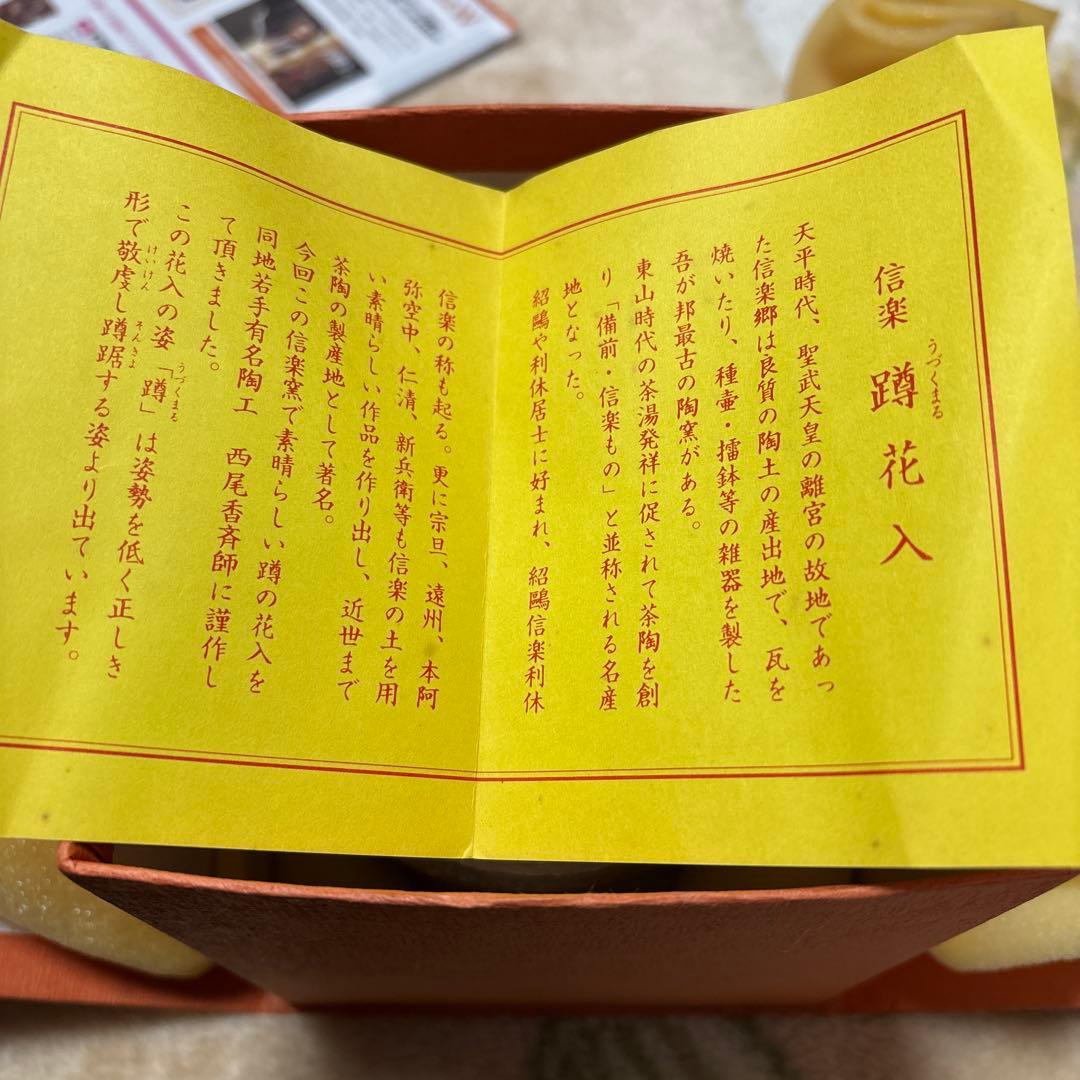 信楽 蹲花入
うづくまる
天平時代、聖武天皇の離宮の故地であっ
た信楽郷は良質の陶土の産出地で、瓦を
焼いたり、種壷・擂鉢等の雑器を製した
吾が邦最古の陶窯がある。
東山時代の茶湯発祥に促されて茶陶を創
り「備前・信楽もの」と並称される名産
地となった。
紹鷗や利休居士に好まれ、紹鷗信楽利休
信楽の称も起る。更に宗旦、遠州、本阿
弥空中、仁清、新兵衛等も信楽の土を用
い素晴らしい作品を作り出し、近世まで
茶陶の製産地として著名。
今回この信楽窯で素晴らしい蹲の花入を
同地若手有名陶工 西尾香斉師に謹作し
て頂きました。
この花入の姿「蹲」は姿勢を低く正しき
うづくまる
形で敬虔し蹲踞する姿より出ています。
けいけん そんきょ